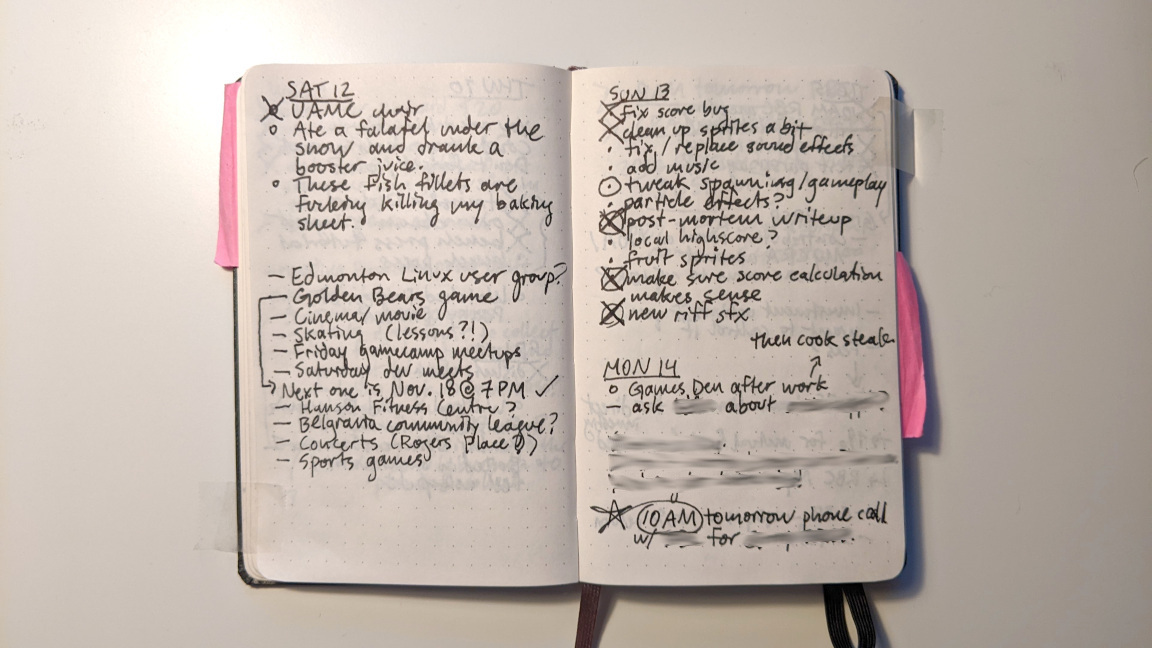 SAT 12
UAME chair
Ate a falafel under the
snow and drank a
booster juice.
These fish fillets are
fucking killing my baking
sheet.
— Edmonton Linux user group?
— Golden Bears game
— Cinema/movie
— Skating (lessons?!)
— Friday gamecamp meetups
— Saturday dev meets
Next one is Nov. 18 @ 7 PM ✓
— Hanson Fitness Centre?
— Belgravia community league?
— Concerts (Rogers Place?)
— Sports games
SUN 13
fix score bug
clean up sprites a bit
· fix/replace sound effects
· add music
tweak spawning/gameplay
· particle effects?
post-mortem writeup
· local highscore?
· fruit sprites
make sure score calculation
makes sense
new riff sfx
then cook steak
MON 14
Games Den after work
— ask about
10AM tomorrow phone call
w/ for